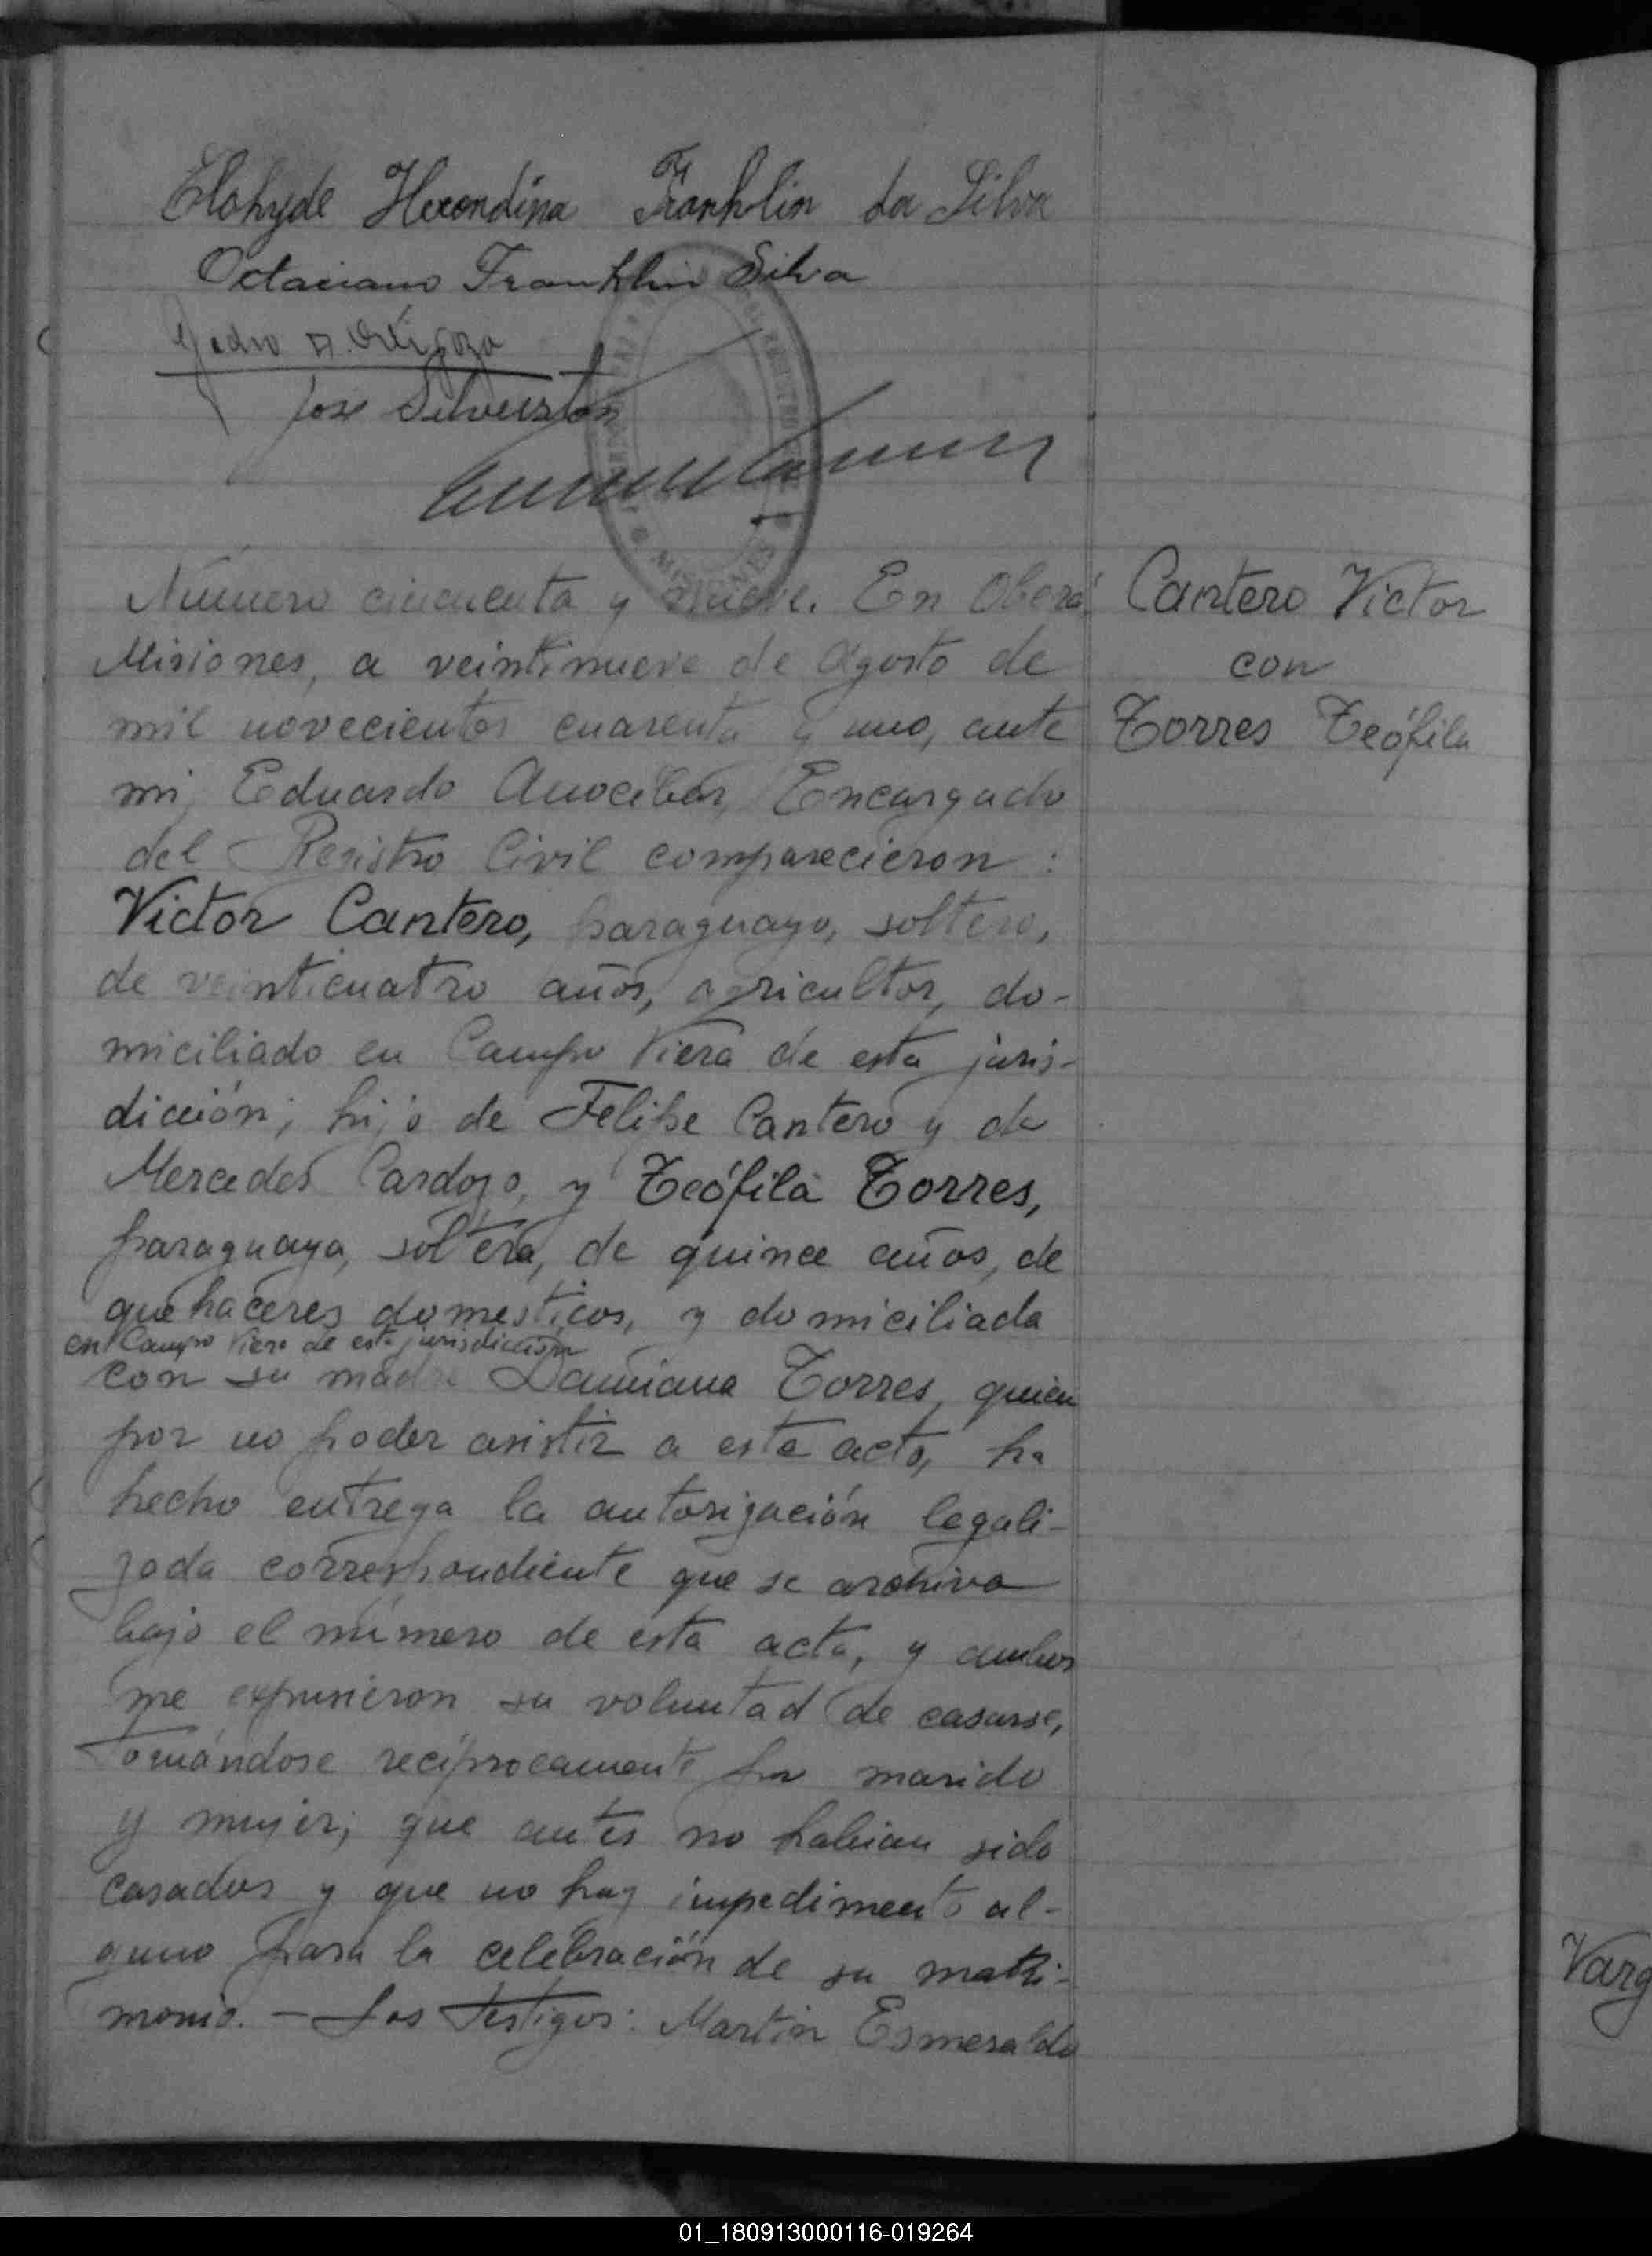 Elohyde Herondina Franklin da Silva
Octaciano Franklin Silva
Pedro A. Ortigoza
Jose
MISIONES
Número cincuenta y nueve. En Oberá,
Misiones, a veintinueve de Agosto de
mil novecientos cuarenta y uno, ante
mi, Eduardo Anocibar, Encargado
del Registro Civil comparecieron:
Victor Cantero, paraguayo, soltero,
de veinticuatro años, agricultor, do-
miciliado en Campo Viera de esta juris-
dicción; hijo de Felipe Cantero y de
Mercedes Cardozo, y Teófila Torres,
paraguaya, soltera, de quince años, de
quehaceres domesticos, y domiciliada
en Campo Viera de esta jurisdicción
con su madre Damiana Torres, quien
por no poder asistir a este acto, ha
hecho entrega la autorización legali-
zada correspondiente que se archiva
bajo el número de esta acta, y ambos
me expusieron su voluntad de casarse,
tomándose recíprocamente por marido
y mujer; que antes no habian sido
casados y que no hay impedimento al-
guno para la celebración de su matri-
monio. — Los testigos: Martin Esmeralda
Cantero Victor
con
Torres Teófila
Varg
01_180913000116-019264